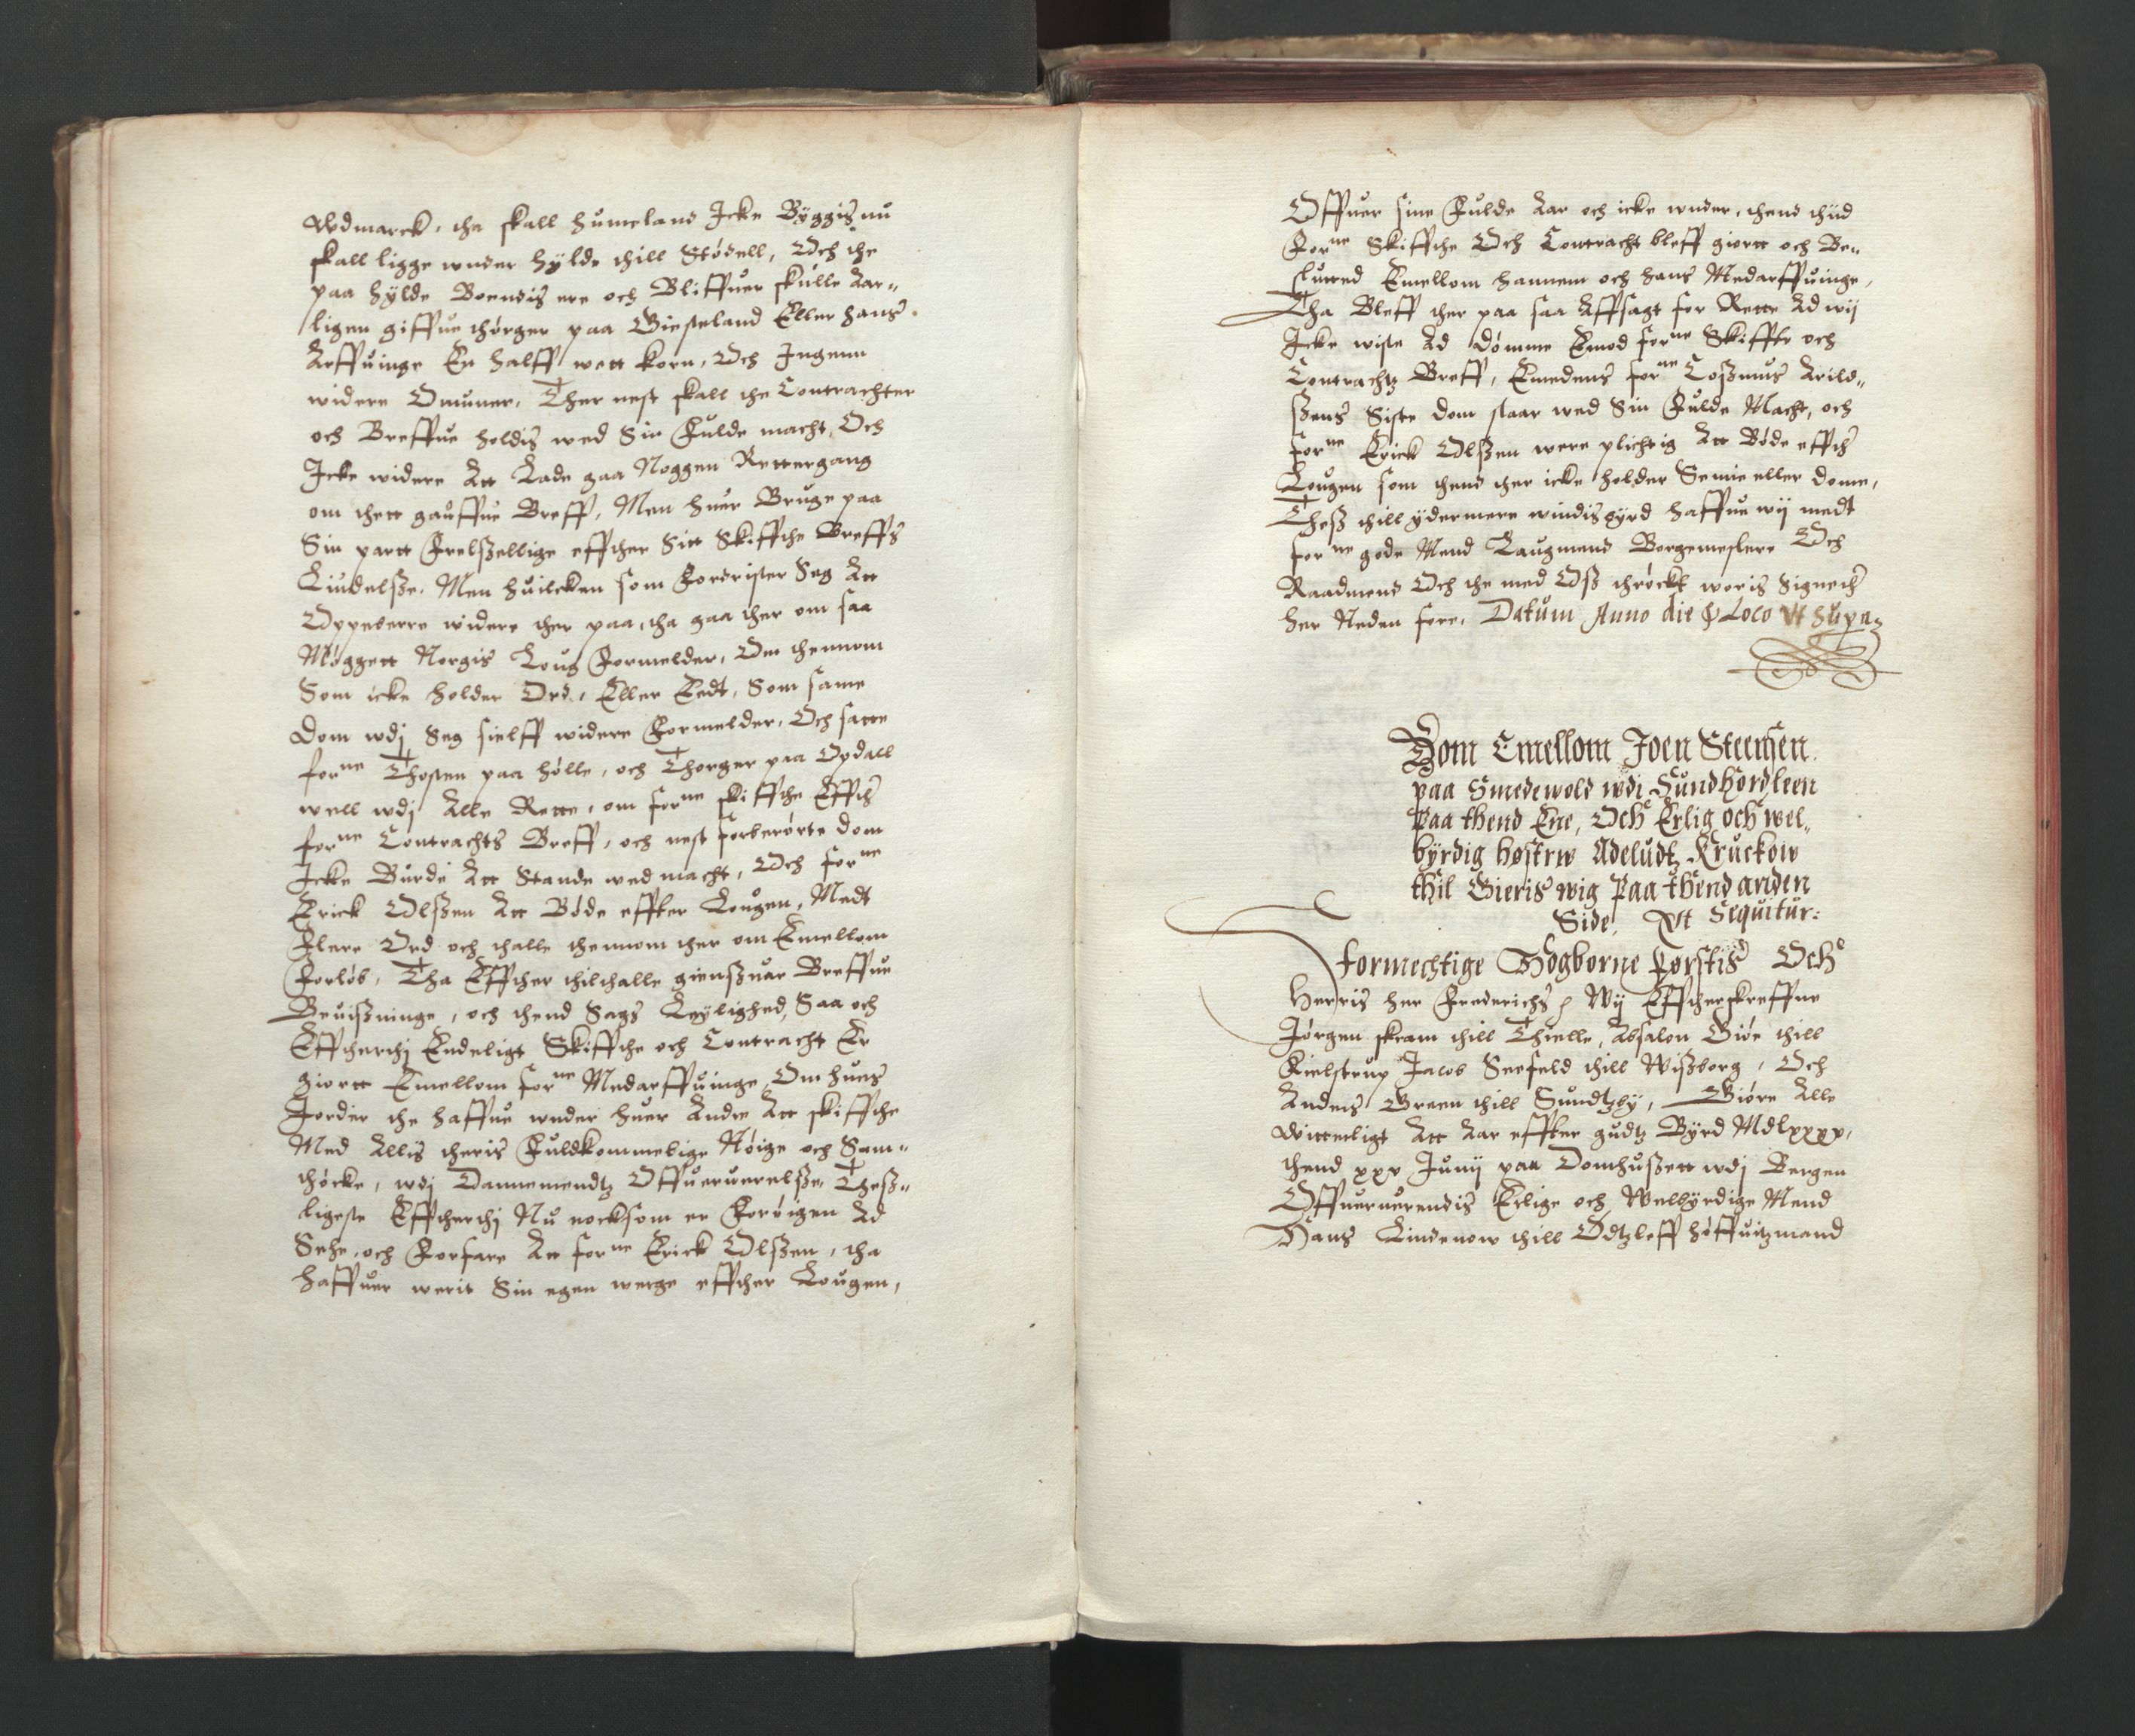 Wdmarck, tha skall Humeland Icke Byggis, nu
skall ligge wnder Hylde thill Stødell, Och the
paa Hylde Boendis ere och Bliffuer skulle Aar„
ligen giffue Thorger paa Giesteland Eller hans
Arffuinge En halff wett korn, Och Ingenn
widere Ommer, Ther nest skall the Contrachter
och Breffue holdis wed Sin Fulde macht, Och
Icke widere Att Lade gaa Noggen Rettergang
om thett gauffue Breff, Men huer Bruge paa
Sin partt Frelszellige effther Sitt Skiffthe Breffs
Liudelsze. Men huilcken som Fordrister Seg Att
Oppeberre widere ther paa, tha gaa ther om saa
Møggett Norgis Loug Formelder, Om thennom
Som icke holder Ord, Eller Eedt, Som same
Dom wdj Seg sielff widere Formelder, Och satte
forne Thosten paa Hølle, och Thorger paa Opdall
well wdj Alle Rette, om forne skiffthe Effth
forne Contrachts Breff, och nest forberørte dom
Icke Burde Att Stande wed macht, Och forne
Erick Olszen Att Bøde effter Lougen, Medt
Flere Ord och thalle thennom ther om Emellom
Forløb, Tha Effther thilthalle giensuar Breffue
Beuiszninge, och thend Sags Leylighed, Saa och
Effttherthj Endeligt Skiffthe och Contracht Er
giortt Emellom forne Medarffuinge, Om hues
Jorder the haffue wnder huer Andre Att skiffthe
Med Allis theris Fuldkommelige Nøige och Sam„
thøcke, wdj Dannemendtz Offueruerelsze, Thesz„
ligeste Effttherthj Nu nocksom er Forøigen Ad
Sehe och Forfare Att forne Erick Olszen, tha
haffuer werit Sin egen werge effther Lougen,
Offuer sine Fulde Aar och icke wnder, thend thiid
Forne Skiffthe Och Contracht bleff giortt och Be„
slutted Emellom hannem och hans Medarffuinge,
Tha Bleff ther paa saa Affsagt for Rette Ad wij
Icke wiste Ad Dømme Emod forne Skiffte och
Contrachtz Breff, Emedens forne Coszmus Arild„
szens Siste dom staar wed Sin Fulde Macht, och
forne Erick Olszen were plichtig Att Bøde effth
Lougen som thend ther icke holder Semie eller dome,
Thesz thill ydermere windisbyrd haffue wij medt
forne gode Mend Laugmend Borgemestere Och
Raadmend Och the med Osz thrøckt woris Signeth
her Neden fore, Datum Anno die & Loco Vt Supra
Dom Emellom Joen Steensen
paa Smedewold wdi Sundhordleen
Paa thend Ene, Och Erlig och wel„
byrdig høstrw Adeludtz Kruckow
thil Gieris wig Paa thend anden
Side, Vt Sequitur:
formechtige Høgborne Førstis Och
Herris her Frederichs Wij Effttherskreffne
Jørgen skram thill Thielle, Absalon Giøe thill
Kielstrup Jacob Seefeld thill Wiszborg, Och
Anders Green thill Sundtzby, Giøre Alle
Witterligt Att Aar effter gudtz Byrd Mdlxxxv,
thend xxv Junij paa Domhuszett wdj Bergen
Offueruerendis Erlige och Welbyrdige Mend
Hans Lindenow thill Ødtzleff høffuitzmand